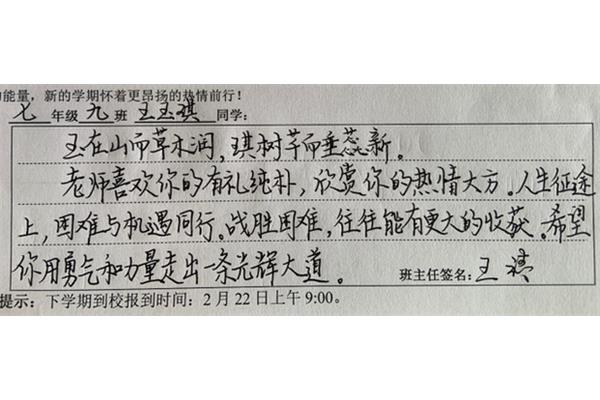 能量，新的学期怀着更昂扬的热情前行！
七 年级 九 班 王玉琪 同学：
玉在山而草木润，琪树芊而垂蕊新。
老师喜欢你的有礼纯朴，欣赏你的热情大方。人生征途
上，困难与机遇同行。战胜困难，往往能有更大的收获。希望
你用勇气和力量走出一条光辉大道。 班主任签名：王
提示：下学期到校报到时间：2 月 22 日上午 9:00。